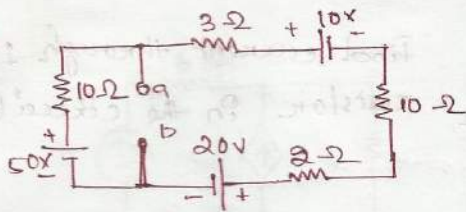 3Ω
+ 10x -
10Ω
a
10Ω
b
+
50x
-
20V
2Ω
- +